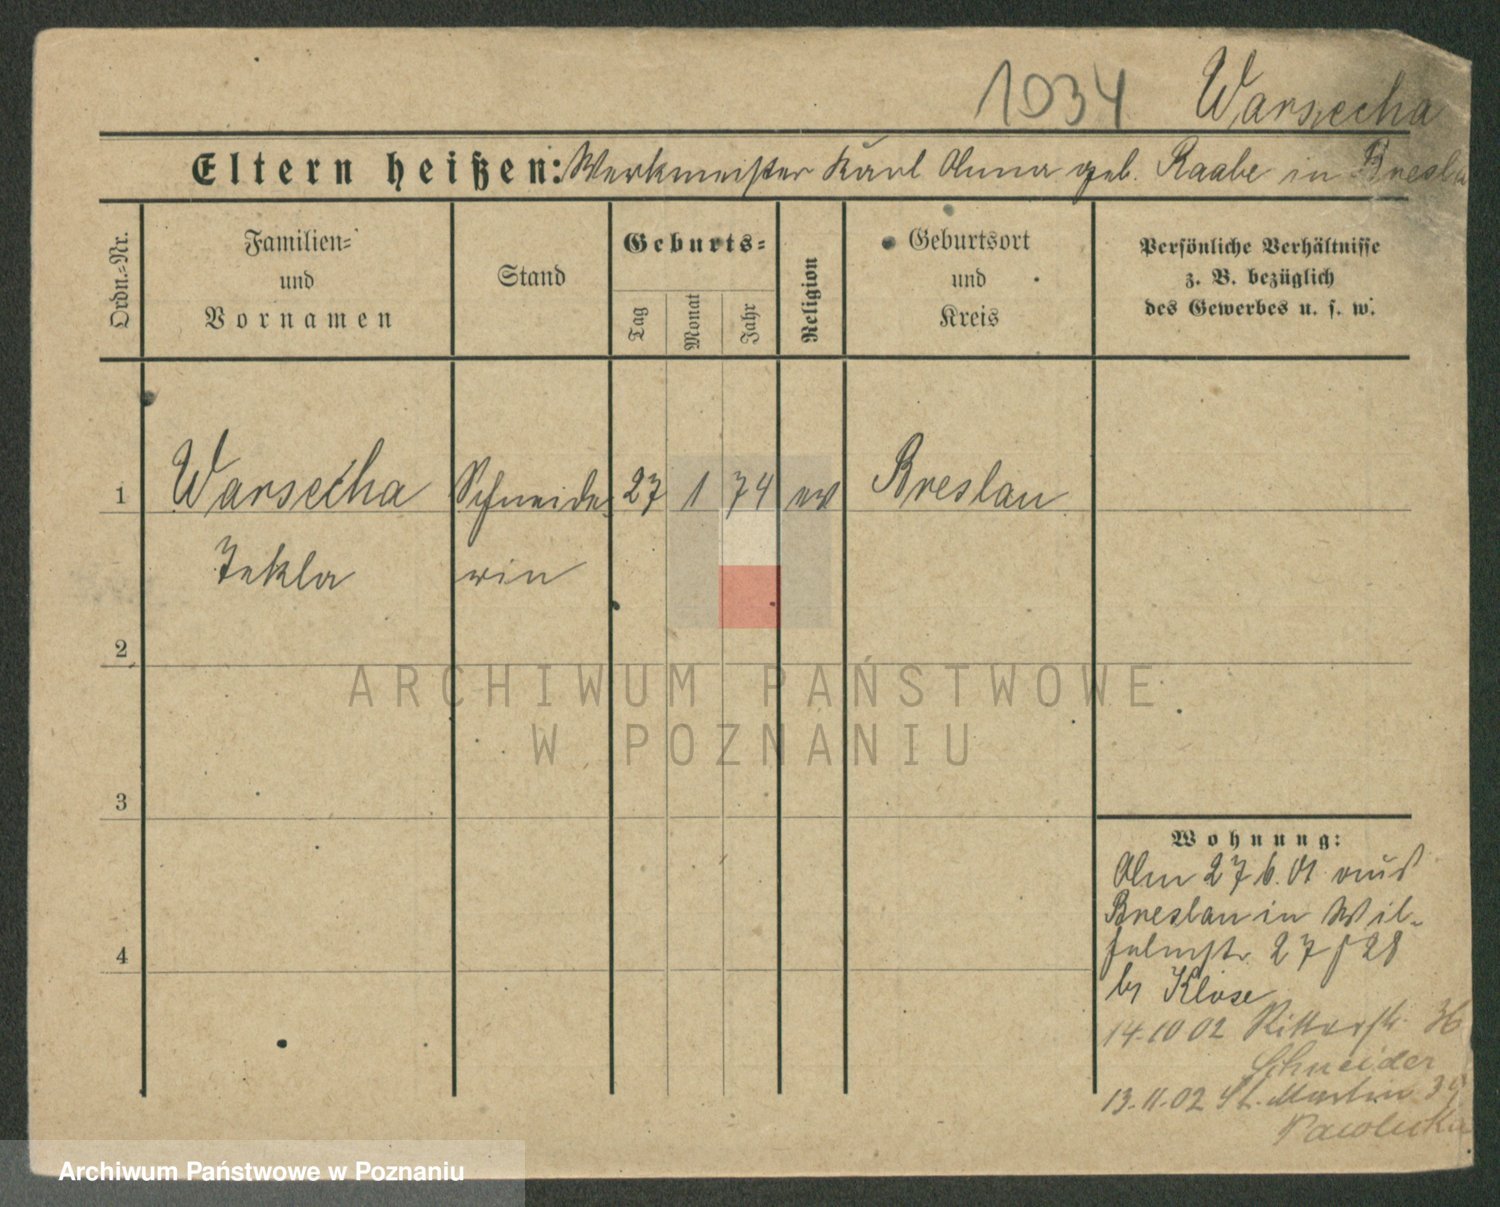 1034 Warsecha
Eltern heißen: Werkmeister Karl Anna geb. Raabe in Breslau
Ordn.=Nr.
Familien=
und
Vornamen
Stand
Geburts=
Tag
Monat
Jahr
Religion
Geburtsort
und
Kreis
Persönliche Verhältnisse
z. B. bezüglich
des Gewerbes u. s. w.
1 Warsecha Schneide= 27 1 74 ev Breslau
Tekla rin
2
3
4
Wohnung:
Am 27 6. 01 aus
Breslau in Wil-
helmstr. 27/28
by Klose
14.10 02 Ritterstr. 36
Schneider
13.11.02 St. Martin
ARCHIWUM PAŃSTWOWE
W POZNANIU
Archiwum Państwowe w Poznaniu